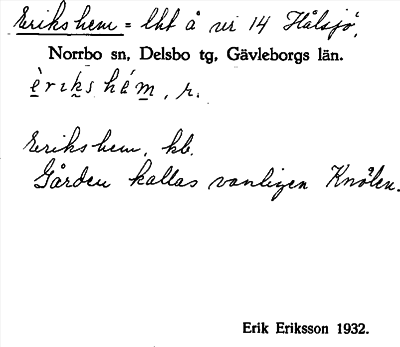 Erikshem = lht å nr 14 Hålsjö,
Norrbo sn, Delsbo tg, Gävleborgs län.
èrıks hém, r.
Erikshem, kb.
Gården kallas vanligen Knölen.
Erik Eriksson 1932.